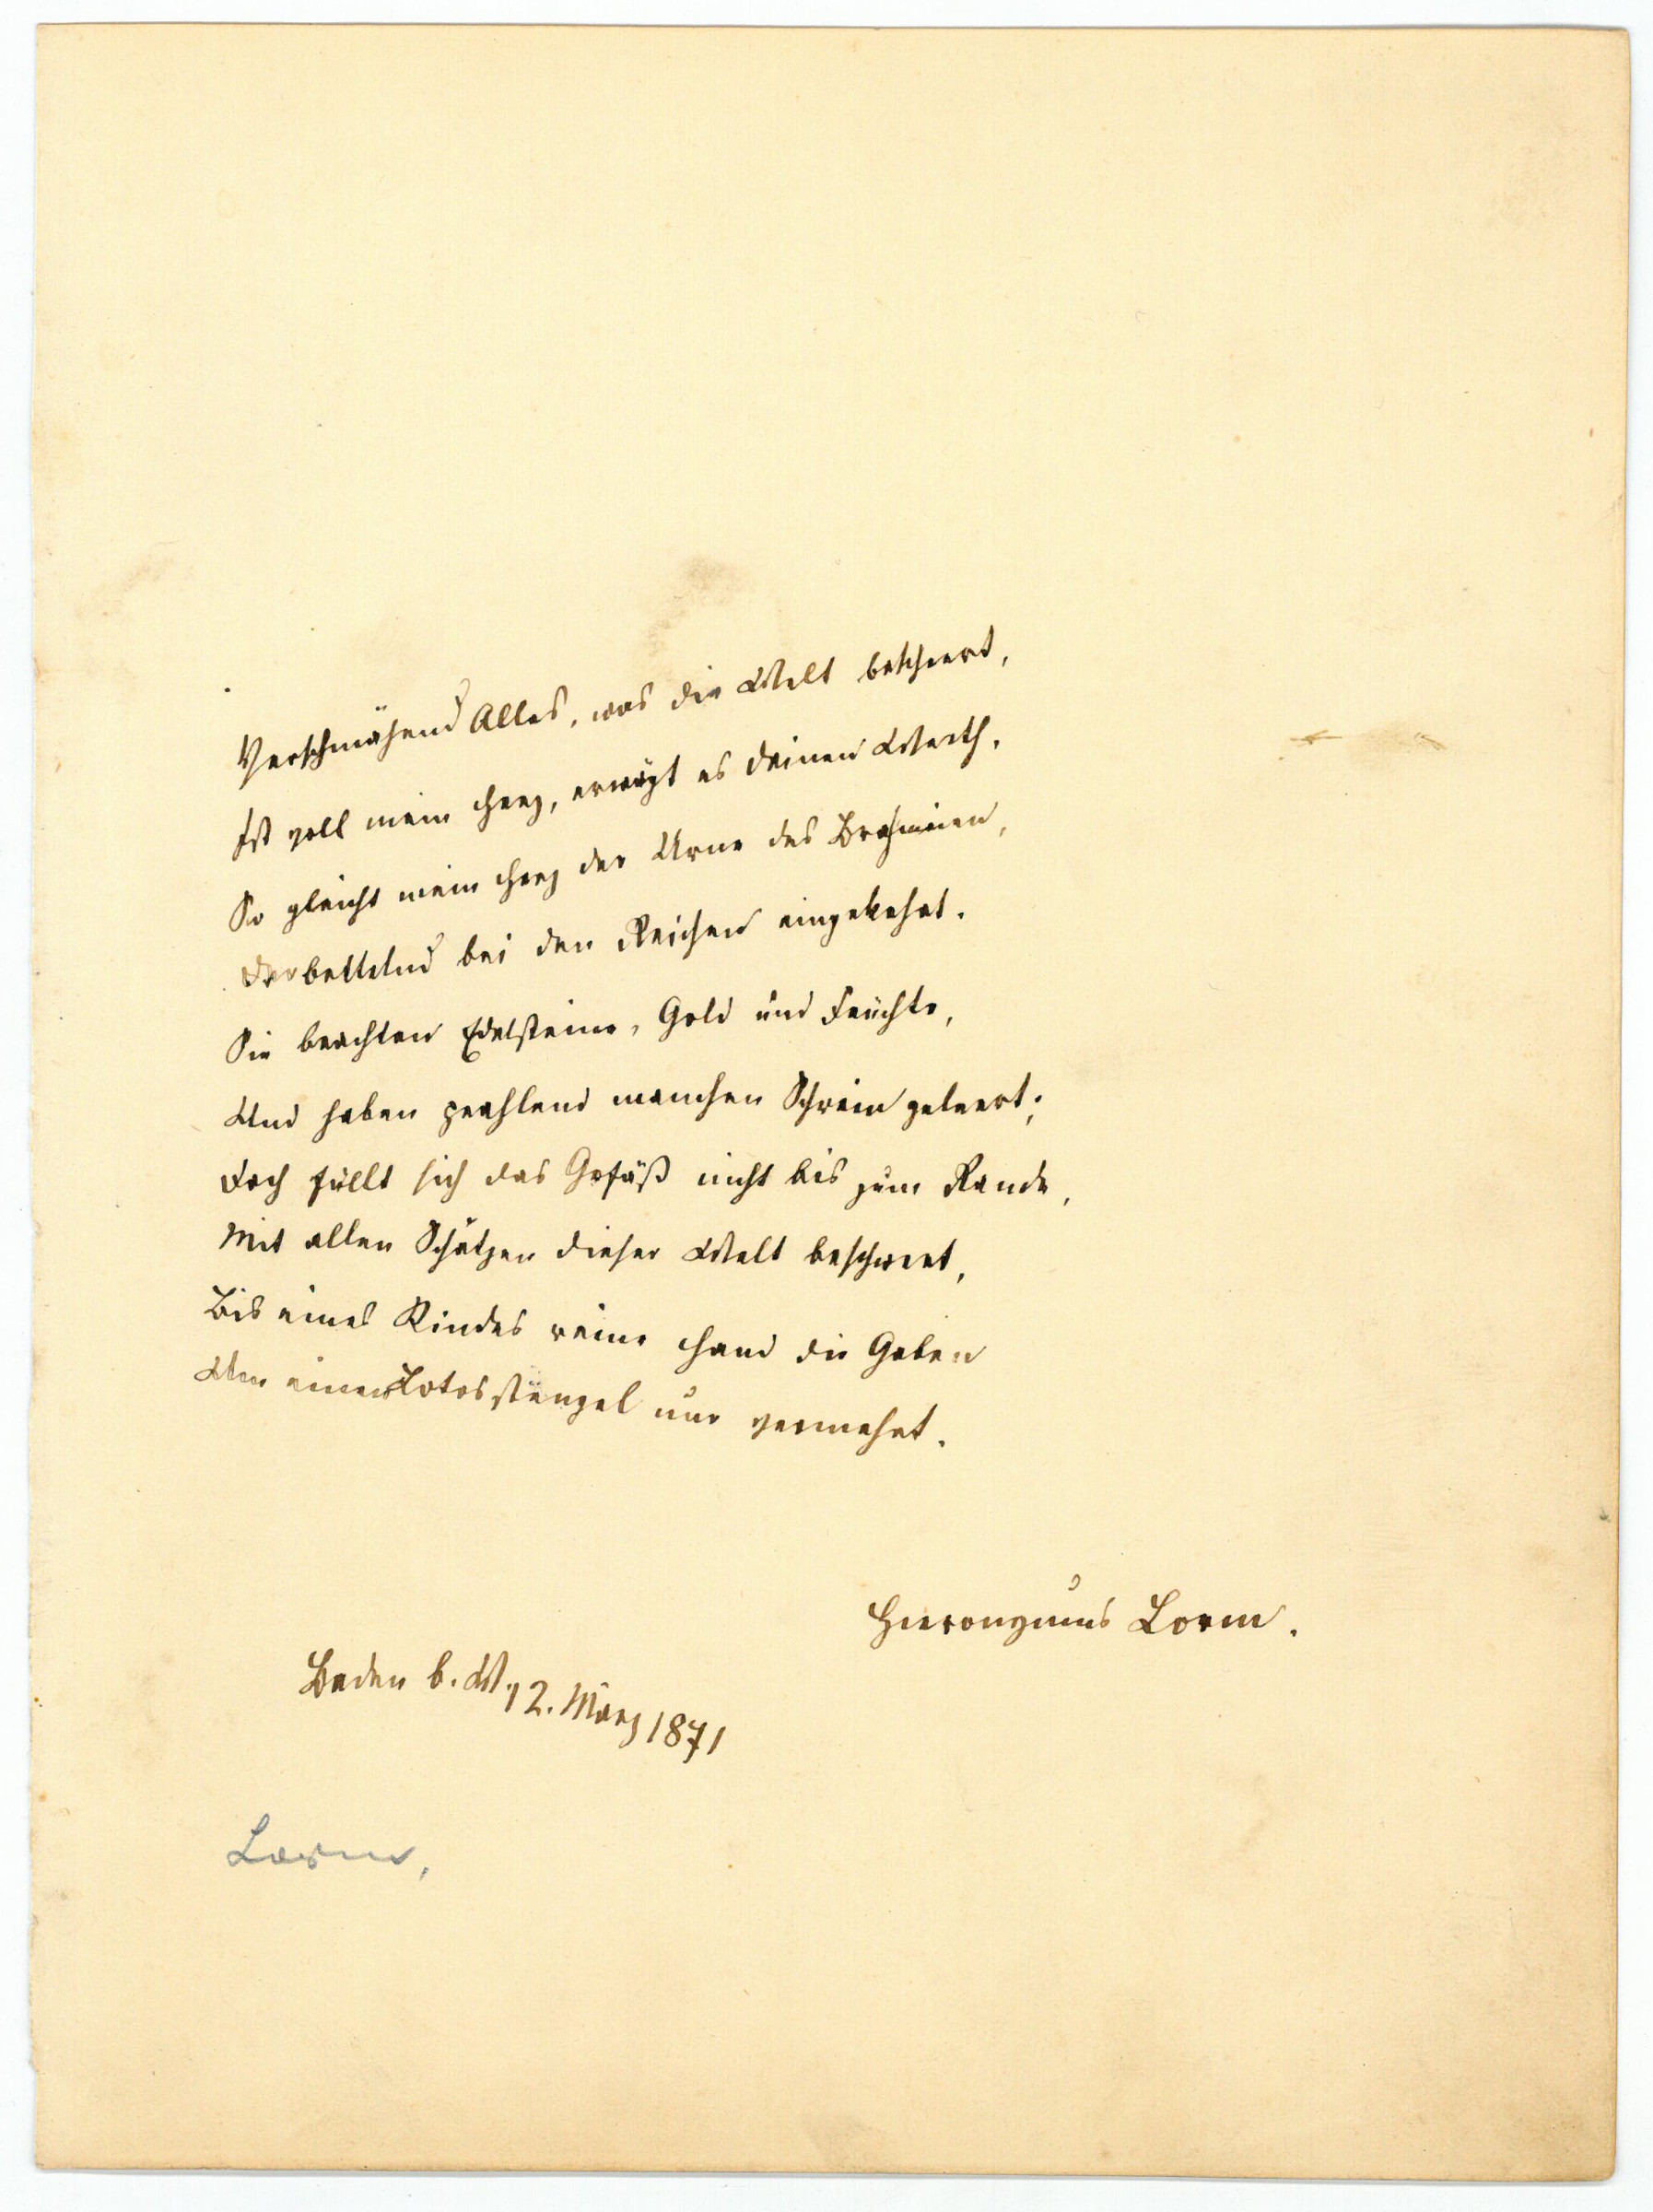 Verschmähend Alles, was die Welt bescheert,
Ist voll mein Herz, erwägt es deinen Werth.
So gleicht mein Herz der Urne des Brahminen,
Der bettelnd bei den Reichen eingekehrt.
Sie brachten Edelsteine, Gold und Früchte,
Und haben prahlend manchen Schrein geleert;
Doch füllt sich das Gefäß nicht bis zum Rande,
Mit allen Schätzen dieser Welt beschwert,
Bis eines Kindes reine Hand die Gaben
Um einen Lotosstängel nur vermehrt.
Hieronymus Lorm.
Baden b. W. 12. März 1871
Lorm,